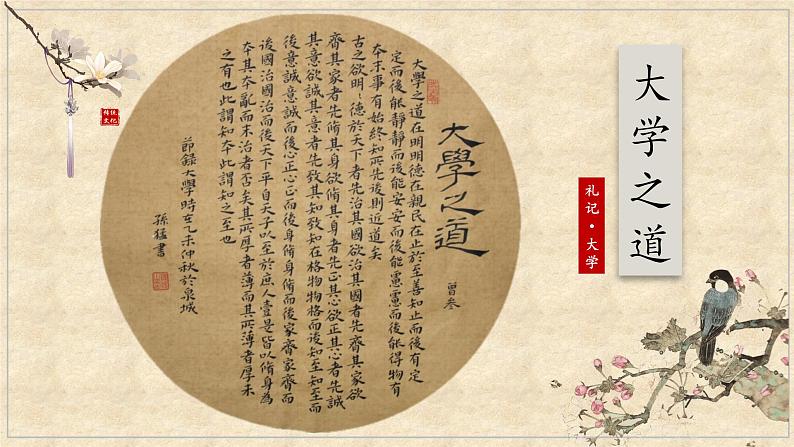 大学之道
礼记·大学
大學之道
曾参
大學之道在明明德在親民在止於至善知止而後有定
定而後能靜靜而後能安安而後能慮慮而後能得物有
本末事有始終知所先後則近道矣
古之欲明〻德於天下者先治其國欲治其國者先齊其家欲
齊其家者先脩其身欲脩其身者先正其心欲正其心者先誠
其意欲誠其意者先致其知致知在格物物格而後知至知至而
後意誠意誠而後心正心正而後身脩身脩而後家齊家齊而
後國治國治而後天下平自天子以至於庶人壹是皆以脩身為
本其本亂而末治者否矣其所厚者薄而其所薄者厚未
之有也此謂知本此謂知之至也
節錄大學時在乙未仲秋於泉城
孫猛書
传统文化